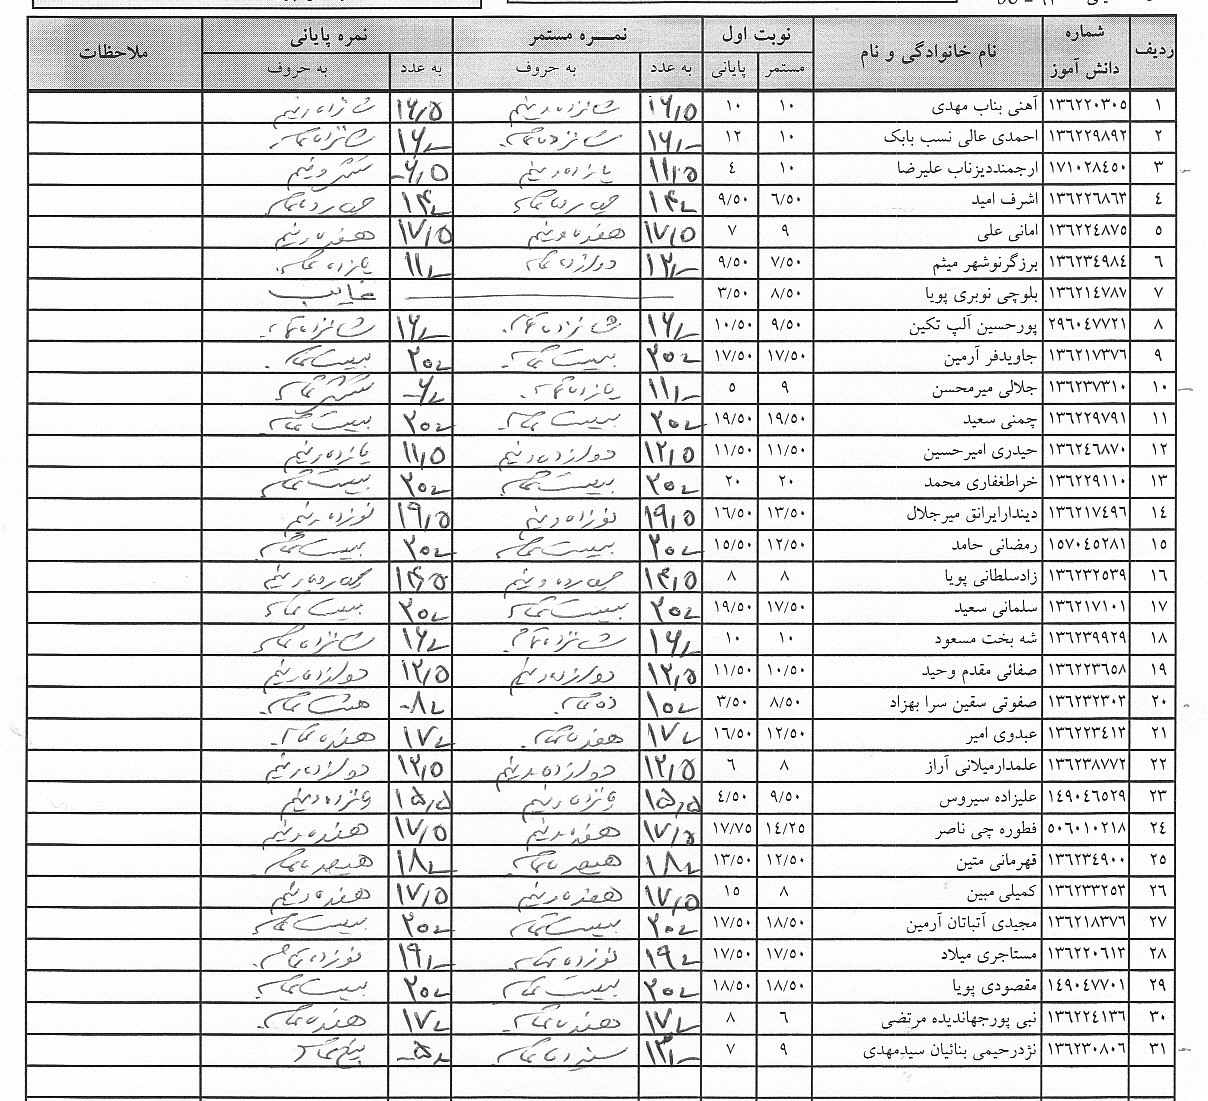 ردیف شماره دانش آموز نام خانوادگی و نام نوبت اول نمـــره مستمر نمره پایانی ملاحظات
مستمر پایانی به عدد به حروف به عدد به حروف
۱ ۱۳۶۲۲۰۳۰۵ آهنی بناب مهدی ۱۰ ۱۰ ۱۶/۵ شانزده و نیم ۱۶/۵ شانزده و نیم
۲ ۱۳۶۲۲۹۸۹۲ احمدی عالی نسب بابک ۱۰ ۱۲ ۱۶/- شانزده تمام ۱۶/- شانزده تمام
۳ ۱۷۱۰۲۸٤۵۰ ارجمنددیزناب علیرضا ۱۰ ٤ ۱۱/۵ یازده و نیم ۶/۵ شش و نیم
٤ ۱۳۶۲۲۶۸۶۳ اشرف امید ۶/۵۰ ۹/۵۰ ۱۴/- چهارده تمام ۱۴/- چهارده تمام
۵ ۱۳۶۲۲٤۸۷۵ امانی علی ۹ ۷ ۱۷/۵ هفده و نیم ۱۷/۵ هفده و نیم
۶ ۱۳۶۲۳٤۹۸٤ برزگرنوشهر میثم ۷/۵۰ ۹/۵۰ ۱۲/- دوازده تمام ۱۱/- یازده تمام
۷ ۱۳۶۲۱٤۷۸۷ بلوچی نوبری پویا ۸/۵۰ ۳/۵۰ غایب
۸ ۲۹۶۰٤۷۷۲۱ پورحسین آلپ تکین ۹/۵۰ ۱۰/۵۰ ۱۶/- شانزده تمام ۱۶/- شانزده تمام
۹ ۱۳۶۲۱۷۳۷۶ جاویدفر آرمین ۱۷/۵۰ ۱۷/۵۰ ۲۰/- بیست تمام ۲۰/- بیست تمام
۱۰ ۱۳۶۲۳۷۳۱۰ جلالی میرمحسن ۹ ۵ ۱۱/- یازده تمام ۶/- شش تمام
۱۱ ۱۳۶۲۲۹۷۹۱ چمنی سعید ۱۹/۵۰ ۱۹/۵۰ ۲۰/- بیست تمام ۲۰/- بیست تمام
۱۲ ۱۳۶۲٤۶۸۷۰ حیدری امیرحسین ۱۱/۵۰ ۱۱/۵۰ ۱۲/۵ دوازده و نیم ۱۱/۵ یازده و نیم
۱۳ ۱۳۶۲۲۹۱۱۰ خراطغفاری محمد ۲۰ ۲۰ ۲۰/- بیست تمام ۲۰/- بیست تمام
۱٤ ۱۳۶۲۱۷٤۹۶ دیندارایرانق میرجلال ۱۳/۵۰ ۱۶/۵۰ ۱۹/۵ نوزده و نیم ۱۹/۵ نوزده و نیم
۱۵ ۱۵۷۰٤۵۲۸۱ رمضانی حامد ۱۲/۵۰ ۱۵/۵۰ ۲۰/- بیست تمام ۲۰/- بیست تمام
۱۶ ۱۳۶۲۳۲۵۳۹ زادسلطانی پویا ۸ ۸ ۱۴/۵ چهارده و نیم ۱۴/۵ چهارده و نیم
۱۷ ۱۳۶۲۱۷۱۰۱ سلمانی سعید ۱۷/۵۰ ۱۹/۵۰ ۲۰/- بیست تمام ۲۰/- بیست تمام
۱۸ ۱۳۶۲۳۹۹۲۹ شه بخت مسعود ۱۰ ۱۰ ۱۶/- شانزده تمام ۱۶/- شانزده تمام
۱۹ ۱۳۶۲۲۳۶۵۸ صفائی مقدم وحید ۱۰/۵۰ ۱۱/۵۰ ۱۲/۵ دوازده و نیم ۱۲/۵ دوازده و نیم
۲۰ ۱۳۶۲۳۲۳۰۲ صفوتی سقین سرا بهزاد ۸/۵۰ ۳/۵۰ ۱۰/- ده تمام ۸/- هشت تمام
۲۱ ۱۳۶۲۲۳٤۱۲ عبدوی امیر ۱۲/۵۰ ۱۶/۵۰ ۱۷/- هفده تمام ۱۷/- هفده تمام
۲۲ ۱۳۶۲۳۸۷۷۲ علمدارمیلانی آراز ۸ ۶ ۱۲/۵ دوازده و نیم ۱۲/۵ دوازده و نیم
۲۳ ۱٤۹۰٤۶۵۲۹ علیزاده سیروس ۹/۵۰ ٤/۵۰ ۱۵/۵ پانزده و نیم ۱۵/۵ پانزده و نیم
۲٤ ۵۰۶۰۱۰۲۱۸ فطوره چی ناصر ۱٤/۲۵ ۱۷/۷۵ ۱۷/۵ هفده و نیم ۱۷/۵ هفده و نیم
۲۵ ۱۳۶۲۳٤۹۰۰ قهرمانی متین ۱۲/۵۰ ۱۳/۵۰ ۱۸/- هیجده تمام ۱۸/- هیجده تمام
۲۶ ۱۳۶۲۳۳۲۵۳ کمیلی مبین ۸ ۱۵ ۱۷/۵ هفده و نیم ۱۷/۵ هفده و نیم
۲۷ ۱۳۶۲۱۸۳۷۶ مجیدی آتباتان آرمین ۱۸/۵۰ ۱۷/۵۰ ۲۰/- بیست تمام ۲۰/- بیست تمام
۲۸ ۱۳۶۲۲۰۶۱۲ مستاجری میلاد ۱۷/۵۰ ۱۷/۵۰ ۱۹/- نوزده تمام ۱۹/- نوزده تمام
۲۹ ۱٤۹۰٤۷۷۰۱ مقصودی پویا ۱۸/۵۰ ۱۸/۵۰ ۲۰/- بیست تمام ۲۰/- بیست تمام
۳۰ ۱۳۶۲۲٤۱۳۶ نبی پورجهاندیده مرتضی ۶ ۸ ۱۷/- هفده تمام ۱۷/- هفده تمام
۳۱ ۱۳۶۲۳۰۸۰۶ نژدرحیمی بنائیان سیدمهدی ۹ ۷ ۱۳/- سیزده تمام ۵/- پنج تمام